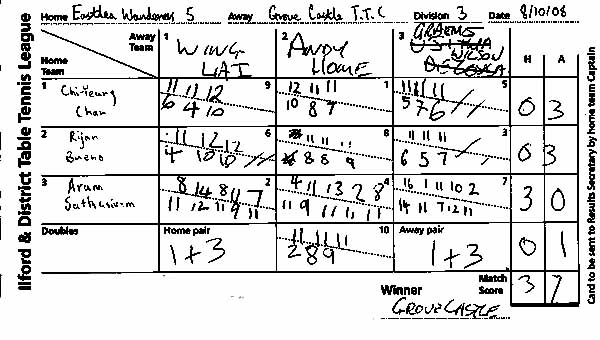 Home Eastlea Wanderers 5 Away Grove Castle T.T.C Division 3 Date 8/10/08
Ilford & District Table Tennis League
Away Team
Home Team
1 WING LAI
2 ANDY HOME
3 GRAEME WILSON
H A
1 Chi-Yeung Chan
11 11 12 9
6 4 10
12 11 11 1
10 8 7
11 11 11 5
5 7 6
0 3
2 Rijan Bueno
11 12 12 6
4 10 10
11 11 11 8
8 8 9
11 11 11 3
6 5 7
0 3
3 Arum
8 14 8 11 7 2
11 12 11 9 11
4 11 13 2 8 4
11 9 11 11 11
16 1 11 10 2 7
14 11 7 12 11
3 0
Doubles
Home pair
1+3
11 11 11 10
2 8 9
Away pair
1+3
0 1
Winner
GROVE CASTLE
Match Score
3 7
Card to be sent to Results Secretary by home team Captain